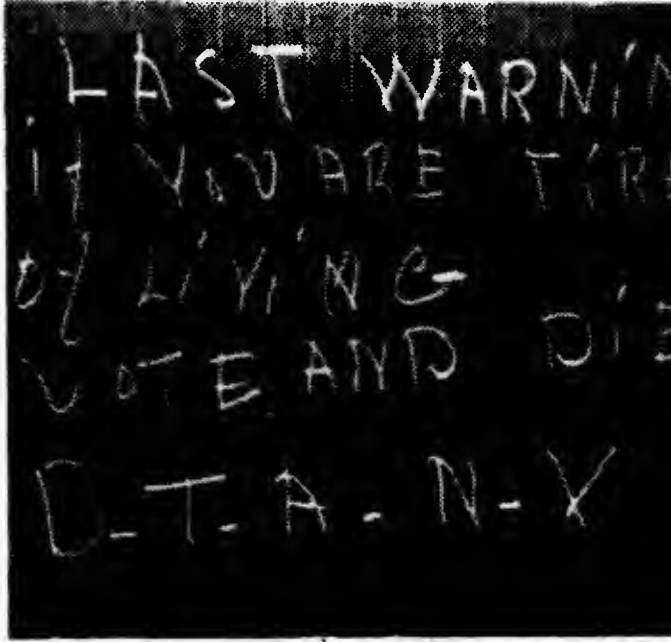 LAST WARNiN
if YOU ARE TiRE
of LiViNG
VOTE AND DiE
D-T-A-N-Y